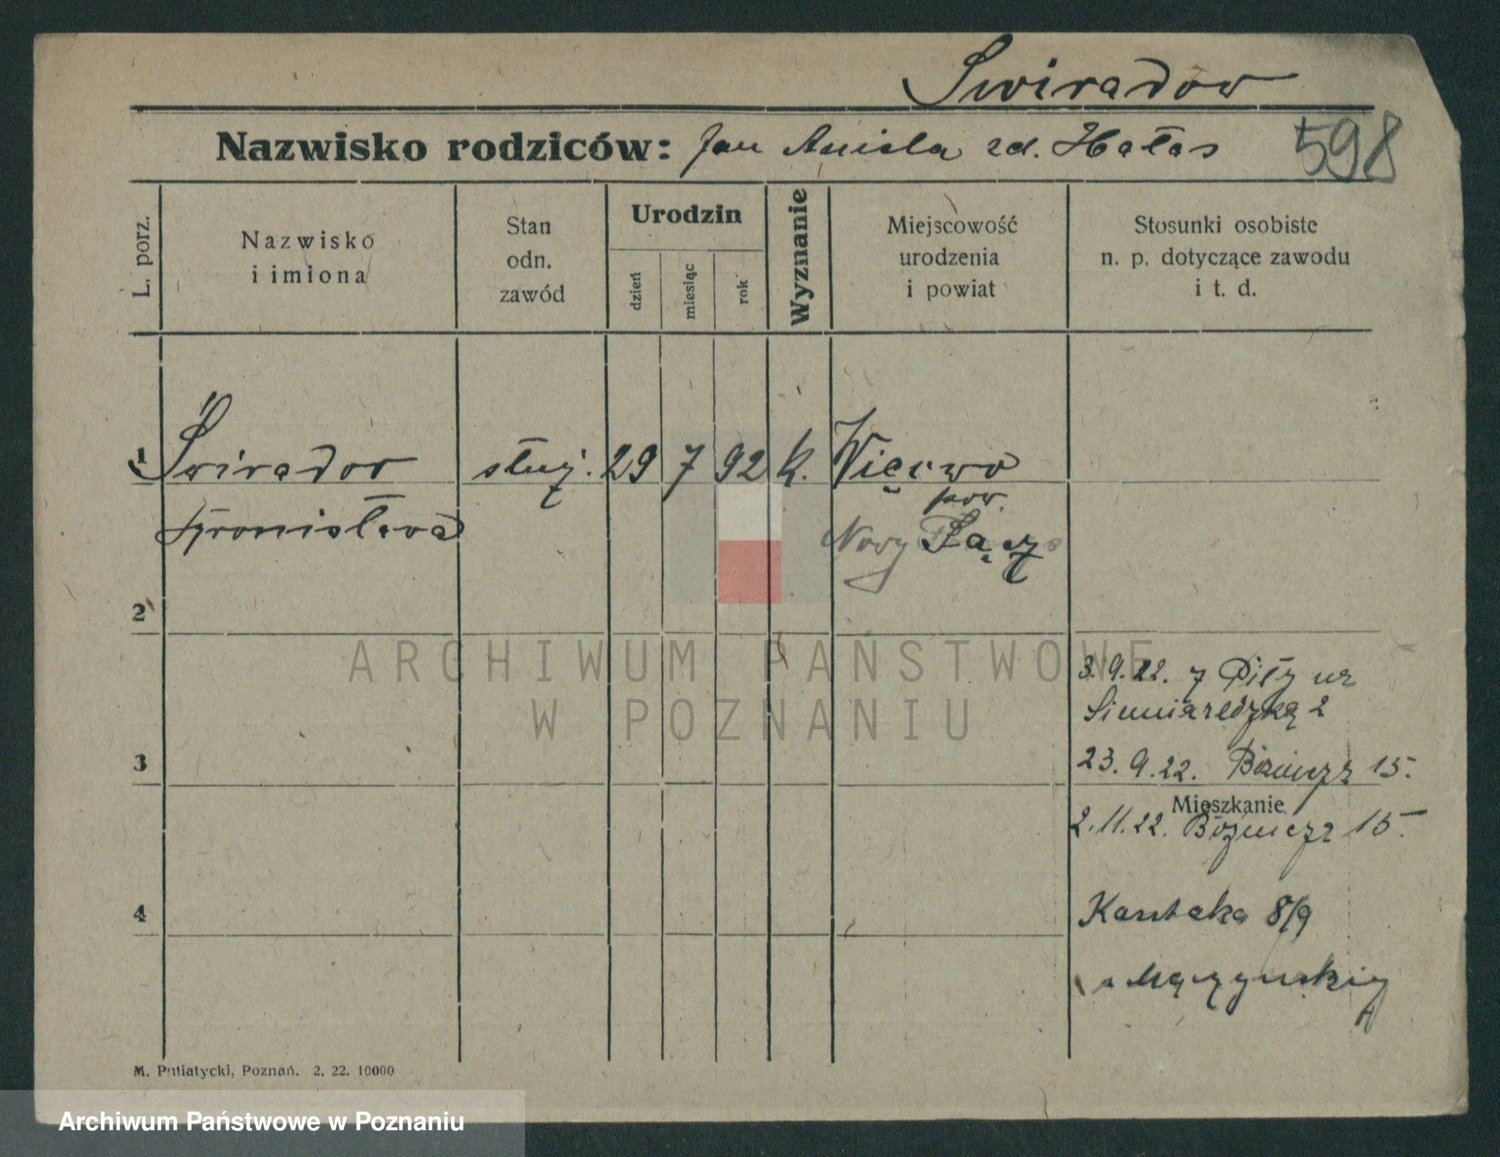 Swirador
Nazwisko rodziców: Jan Aniela zd. Hałas 598
L. porz.
Nazwisko
i imiona
Stan
odn.
zawód
Urodzin
dzień
miesiąc
rok
Wyznanie
Miejscowość
urodzenia
i powiat
Stosunki osobiste
n. p. dotyczące zawodu
i t. d.
1 Świrador służ. 29 7 92 k.
Bronisława
pow.
Nowy Sącz
2
3.9.22. z Piły
2
3 23.9.22. 15.
Mieszkanie
2.11.22. 15.
4 Kantaka 8/9
M. Putiatycki, Poznań. 2. 22. 10000
ARCHIWUM PAŃSTWOWE
W POZNANIU
Archiwum Państwowe w Poznaniu